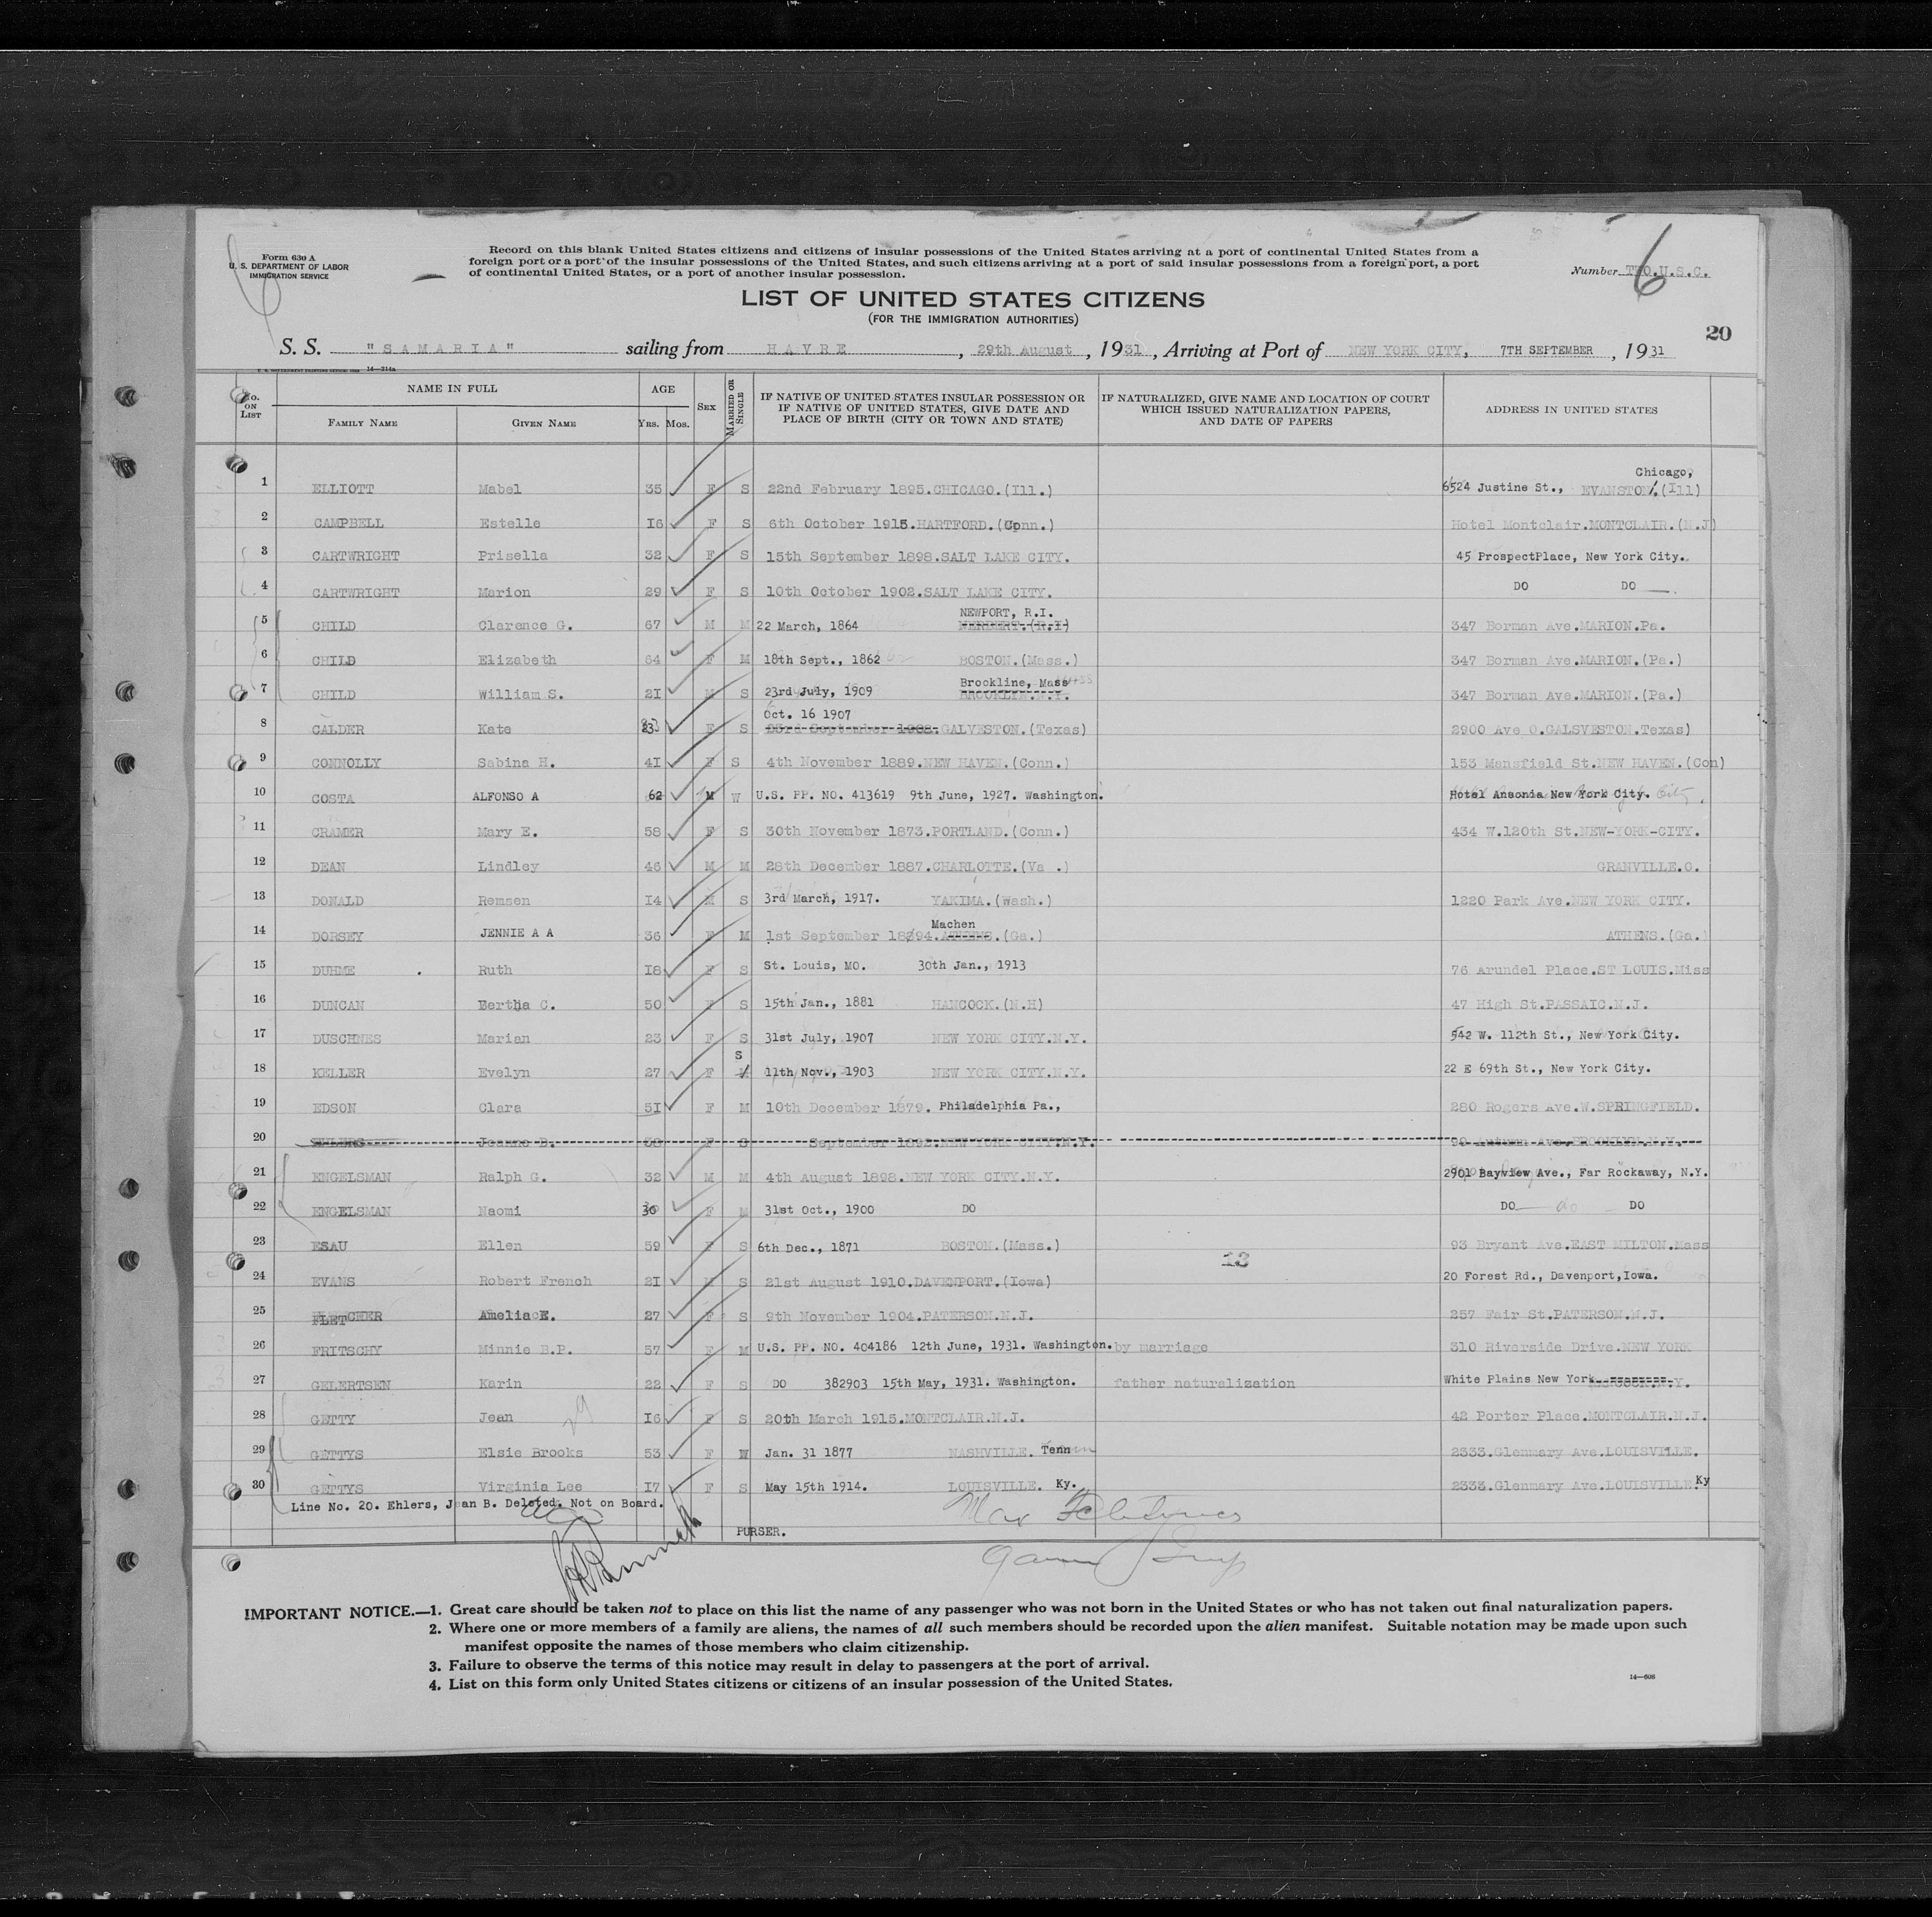 Form 630 A
U. S. DEPARTMENT OF LABOR
IMMIGRATION SERVICE
Record on this blank United States citizens and citizens of insular possessions of the United States arriving at a port of continental United States from a
foreign port or a port of the insular possessions of the United States, and such citizens arriving at a port of said insular possessions from a foreign port, a port
of continental United States, or a port of another insular possession.
Number TWO.U.S.C.
6
LIST OF UNITED STATES CITIZENS
(FOR THE IMMIGRATION AUTHORITIES)
20
S. S. "SAMARIA" sailing from HAVRE, 29th August, 1931, Arriving at Port of NEW YORK CITY, 7TH SEPTEMBER, 1931
14—214a
No. ON LIST
NAME IN FULL
FAMILY NAME
GIVEN NAME
AGE
YRS.
MOS.
SEX
MARRIED OR SINGLE
IF NATIVE OF UNITED STATES INSULAR POSSESSION OR
IF NATIVE OF UNITED STATES, GIVE DATE AND
PLACE OF BIRTH (CITY OR TOWN AND STATE)
IF NATURALIZED, GIVE NAME AND LOCATION OF COURT
WHICH ISSUED NATURALIZATION PAPERS,
AND DATE OF PAPERS
ADDRESS IN UNITED STATES
Chicago,
1 ELLIOTT Mabel 35 F S 22nd February 1895.CHICAGO.(Ill.) 6524 Justine St., EVANSTON.(Ill)
2 CAMPBELL Estelle 16 F S 6th October 1915.HARTFORD.(Conn.) Hotel Montclair.MONTCLAIR.(N.J)
3 CARTWRIGHT Prisella 32 F S 15th September 1898.SALT LAKE CITY. 45 ProspectPlace, New York City.
4 CARTWRIGHT Marion 29 F S 10th October 1902.SALT LAKE CITY. DO DO
NEWPORT, R.I.
5 CHILD Clarence G. 67 M M 22 March, 1864 347 Borman Ave.MARION.Pa.
6 CHILD Elizabeth 64 F M 18th Sept., 1862 BOSTON.(Mass.) 347 Borman Ave.MARION.(Pa.)
Brookline, Mass
7 CHILD William S. 21 M S 23rd July, 1909 BROOKLYN.N.Y. 347 Borman Ave.MARION.(Pa.)
Oct. 16 1907
8 CALDER Kate 23 F S 23rd September 1908.GALVESTON.(Texas) 2900 Ave O.GALSVESTON.Texas)
9 CONNOLLY Sabina H. 41 F S 4th November 1889.NEW HAVEN.(Conn.) 153 Mansfield St.NEW HAVEN.(Con)
10 COSTA ALFONSO A 62 M W U.S. PP. NO. 413619 9th June, 1927. Washington. Hotel Ansonia New York City.
11 CRAMER Mary E. 58 F S 30th November 1873.PORTLAND.(Conn.) 434 W.120th St.NEW-YORK-CITY.
12 DEAN Lindley 46 M M 28th December 1887.CHARLOTTE.(Va .) GRANVILLE.O.
13 DONALD Remsen 14 M S 3rd March, 1917. YAKIMA.(Wash.) 1220 Park Ave.NEW YORK CITY.
Machen
14 DORSEY JENNIE A A 36 F M 1st September 1894.ATHENS.(Ga.) ATHENS.(Ga.)
15 DUHME Ruth 18 F S St. Louis, MO. 30th Jan., 1913 76 Arundel Place.ST LOUIS.Miss
16 DUNCAN Bertha C. 50 F S 15th Jan., 1881 HANCOCK.(N.H) 47 High St.PASSAIC.N.J.
17 DUSCHNES Marian 23 F S 31st July, 1907 NEW YORK CITY.N.Y. 542 W. 112th St., New York City.
S
18 KELLER Evelyn 27 F M 11th Nov., 1903 NEW YORK CITY.N.Y. 22 E 69th St., New York City.
19 EDSON Clara 51 F M 10th December 1879. Philadelphia Pa., 280 Rogers Ave.W.SPRINGFIELD.
20 EHLERS Jeanne B. 38 F S September 1892.NEW YORK CITY.N.Y. 90 Autumn Ave.BROOKLYN.N.Y.
21 ENGELSMAN Ralph G. 32 M M 4th August 1898.NEW YORK CITY.N.Y. 2901 Bayview Ave., Far Rockaway, N.Y.
22 ENGELSMAN Naomi 30 F M 31st Oct., 1900 DO DO do DO
23 ESAU Ellen 59 F S 6th Dec., 1871 BOSTON.(Mass.) 93 Bryant Ave.EAST MILTON.Mass
12
24 EVANS Robert French 21 M S 21st August 1910.DAVENPORT.(Iowa) 20 Forest Rd., Davenport,Iowa.
25 FLETCHER Amelia E. 27 F S 9th November 1904.PATERSON.N.J. 257 Fair St.PATERSON.N.J.
26 FRITSCHY Minnie B.P. 57 F M U.S. PP. NO. 404186 12th June, 1931. Washington. by marriage 310 Riverside Drive.NEW YORK
27 GELERTSEN Karin 22 F S DO 382903 15th May, 1931. Washington. father naturalization White Plains New York N.Y.
28 GETTY Jean 16 F S 20th March 1915.MONTCLAIR.N.J. 42 Porter Place.MONTCLAIR.N.J.
29 GETTYS Elsie Brooks 53 F W Jan. 31 1877 NASHVILLE. Tenn 2333.Glenmary Ave.LOUISVILLE.
30 GETTYS Virginia Lee 17 F S May 15th 1914. LOUISVILLE. Ky. 2333.Glenmary Ave.LOUISVILLE.Ky
Line No. 20. Ehlers, Jean B. Deleted. Not on Board.
PURSER.
IMPORTANT NOTICE.—1. Great care should be taken not to place on this list the name of any passenger who was not born in the United States or who has not taken out final naturalization papers.
2. Where one or more members of a family are aliens, the names of all such members should be recorded upon the alien manifest. Suitable notation may be made upon such
manifest opposite the names of those members who claim citizenship.
3. Failure to observe the terms of this notice may result in delay to passengers at the port of arrival.
4. List on this form only United States citizens or citizens of an insular possession of the United States.
14—608